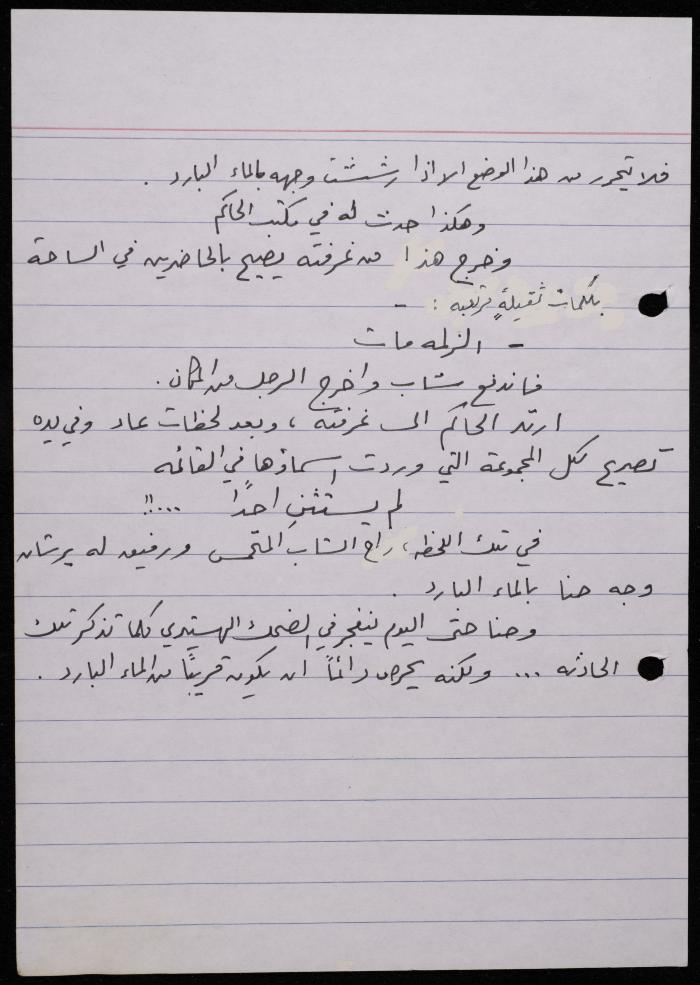 فلا يتحرر من هذا الوضع الا اذا رششت وجهه بالماء البارد .
وهكذا حدث له في مكتب الحاكم
وخرج هذا من غرفته يصيح بالحاضرين في الساحة
بكلمات ثقيلةٍ مرتعبه : -
- الزلمه مات
فاندفع شاب واخرج الرجل من المكان .
ارتد الحاكم الى غرفته ، وبعد لحظات عاد وفي يده
تصريح لكل المجموعة التي وردت اسماؤها في القائمه
لم يستثنِ احدًا ...!!
في تلك اللحظه ، راح الشاب المتحمس ورفيق له يرشان
وجه حنا بالماء البارد .
وحنا حتى اليوم ينفجر في الضحك الهستيري كلما تذكر تلك
الحادثه ... ولكنه يحرص دائماً ان يكون قريبًا من الماء البارد .